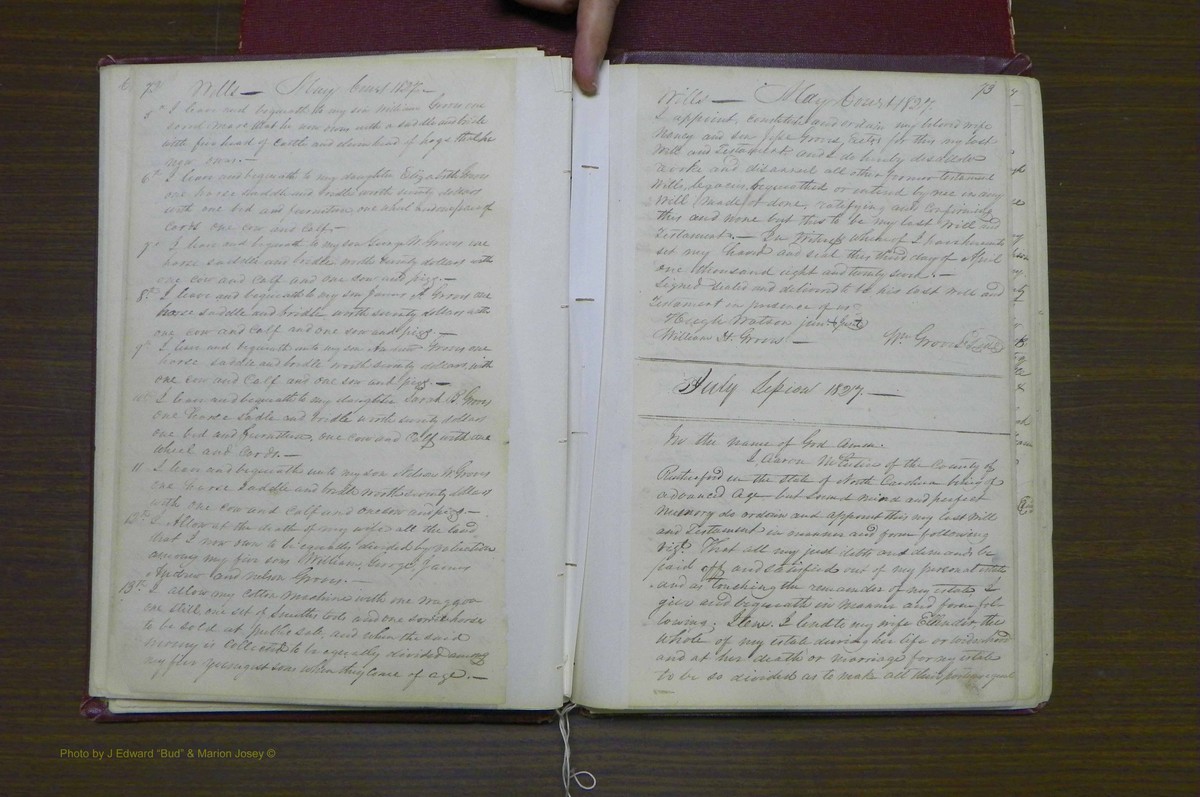 72 Wills — May Court 1827. —
5th I leave and bequeath to my son William Groves one
sorrel mare that he now owns with a saddle and bridle
with five head of Cattle and eleven head of hogs that he
now owns. —
6th I leave and bequeath to my daughter Elizabeth Groves
one horse saddle and bridle worth seventy dollars
with one bed and furniture, one wheel and one pair of
cards one cow and calf. —
7th I leave and bequeath to my son George W Groves one
horse, saddle and bridle worth seventy dollars with
one cow and calf and one sow and pigs. —
8th I leave and bequeath to my son James A Groves one
horse saddle and bridle worth seventy dollars with
one cow and calf and one sow and pigs. —
9th I leave and bequeath unto my son Andrew Groves one
horse saddle and bridle worth seventy dollars, with
one cow and calf and one sow and pigs. —
10th I leave and bequeath to my daughter Sarah Groves
one horse sadle and bridle worth seventy dollars
one bed and furniture, one cow and Calf with one
wheel and Cards. —
11 I leave and bequeath unto my son Nelson W Groves
one horse saddle and bridle worth seventy dollars
with one cow and calf and one sow and pigs. —
12th I Allow at the death of my wife all the land
that I now own to be equally divided by valuation
among my five sons William, George, James
Andrew and Nelson Groves. —
13th I allow my Cotton Machine with one waggon
one still one set of Smiths tools and one sorrel horse
to be sold at public sale, and when the said
money is Collected to be equally divided among
my five youngest sons when they come of age. —
Wills — May Court 1827. 73
I appoint, constitute and ordain my beloved wife
Nancy and son Jesse Groves, Exctrs for this my last
Will and Testament and I do hereby disallow
revoke and disannul all other former testament
Wills, legacies bequeathed or intend by me in any
Will made or done, ratifying and Confirming
this and none but this to be my last Will and
Testament. — In Witness whereof I have hereunto
set my hand and seal this third day of April
one thousand eight and twenty seven. —
Signed sealed and delivered to be his last Will and
Testament in presence of us
Watson junr Jurat
William H. Groves — Wm Groves Seal
July Session 1827. —
In the name of God Amen.
I, Aaron of the County of
Rutherford in the State of North Carolina being of
advanced age but sound mind and perfect
memory do ordain and appoint this my last Will
and Testament in manner and form following
viz. That all my just debts and demands be
paid off and satisfied out of my personal estate
and as touching the remainder of my estate I
give and bequeath in manner and form fol-
lowing; Item. I lend to my wife the
whole of my estate during her life or widowhood
and at her death or marriage for my estate
to be so divided as to make all their
Photo by J Edward "Bud" & Marion Josey ©